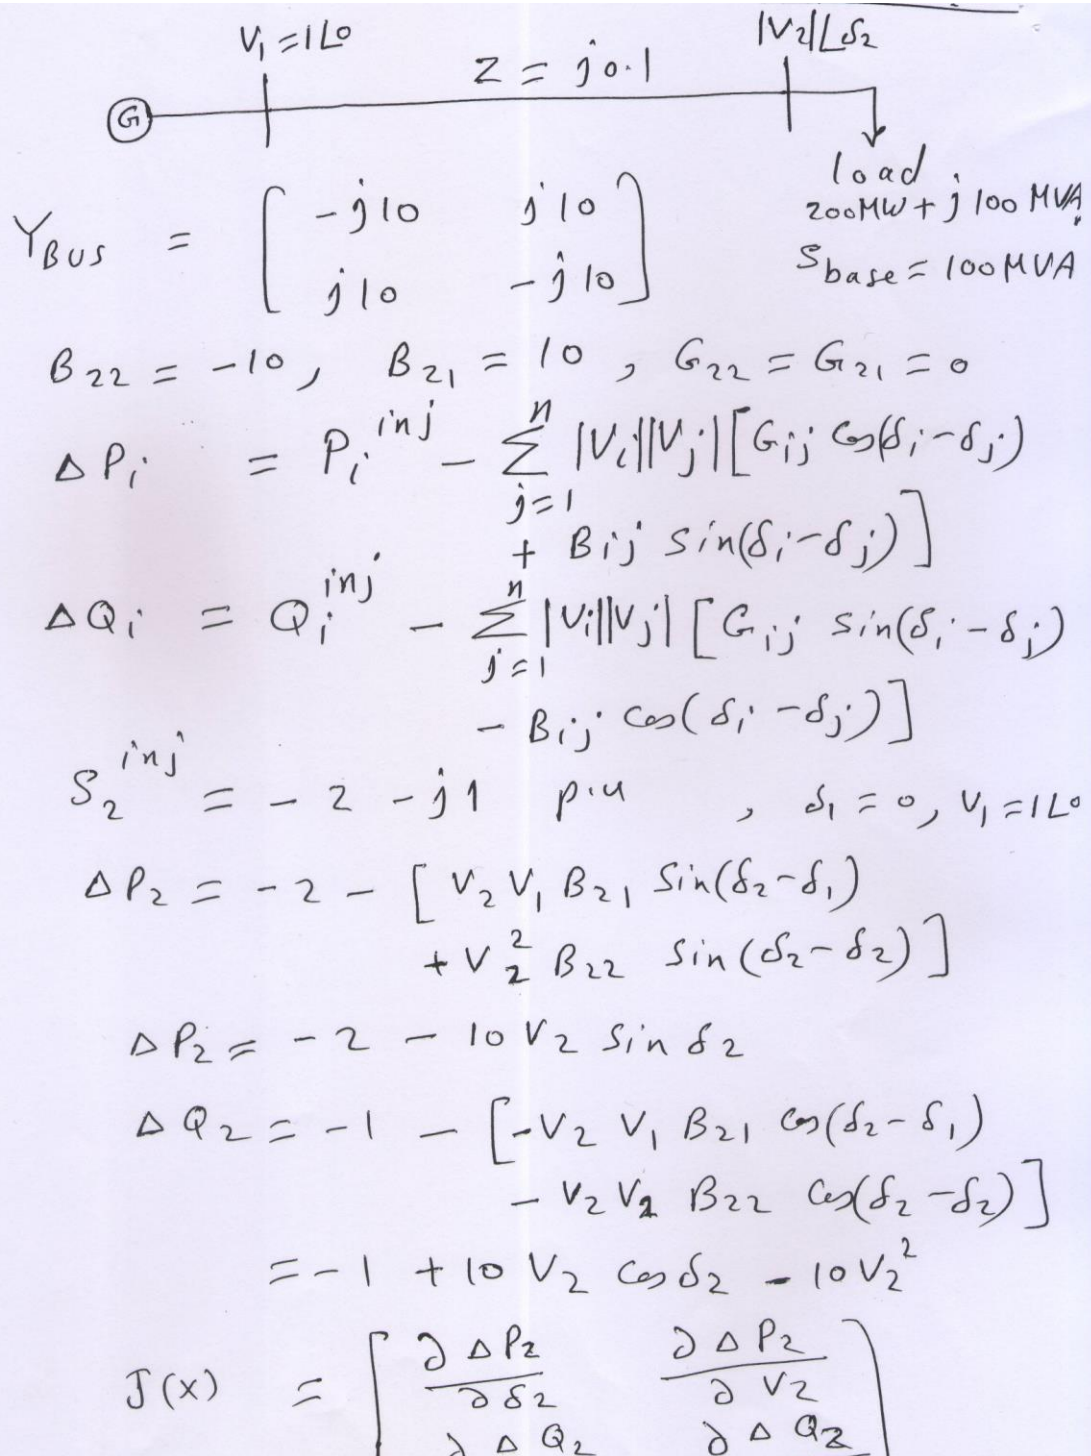 V₁ = 1∠0 |V₂|∠δ₂
Z = j0.1
G
load
200MW + j 100 MVA
S base = 100 MVA
Y BUS = [ -j10 j10
j10 -j10 ]
B₂₂ = -10, B₂₁ = 10, G₂₂ = G₂₁ = 0
ΔPᵢ = Pᵢ^inj - Σ_{j=1}^{n} |Vᵢ||Vⱼ| [Gᵢⱼ Cos(δᵢ-δⱼ)
+ Bᵢⱼ sin(δᵢ-δⱼ)]
ΔQᵢ = Qᵢ^inj - Σ_{j=1}^{n} |Vᵢ||Vⱼ| [Gᵢⱼ sin(δᵢ-δⱼ)
- Bᵢⱼ cos(δᵢ-δⱼ)]
S₂^inj = -2 -j1 p.u , δ₁ = 0, V₁ = 1∠0
ΔP₂ = -2 - [V₂ V₁ B₂₁ Sin(δ₂-δ₁)
+ V₂² B₂₂ Sin(δ₂-δ₂)]
ΔP₂ = -2 - 10 V₂ Sin δ₂
ΔQ₂ = -1 - [-V₂ V₁ B₂₁ Cos(δ₂-δ₁)
- V₂ V₂ B₂₂ Cos(δ₂-δ₂)]
= -1 + 10 V₂ Cos δ₂ - 10 V₂²
J(x) = [ ∂ΔP₂/∂δ₂ ∂ΔP₂/∂V₂
∂ΔQ₂ ∂ΔQ₂